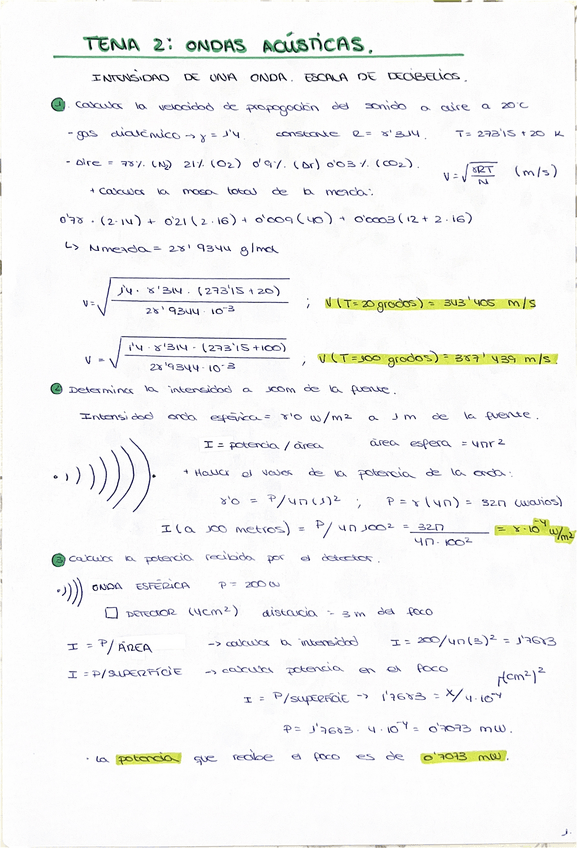 TEMA 2: ONDAS ACÚSTICAS.
INTENSIDAD DE UNA ONDA. ESCALA DE DECIBELIOS.
1 Calcular la velocidad de propagación del sonido a aire a 20ºC
- gas diatómico → γ = 1'4 constante R = 8'314. T = 273'15 + 20 K
- Aire = 78% (N2) 21% (O2) 0'9% (Ar) 0'03% (CO2). V = √(γRT/M) (m/s)
+ Calcular la masa total de la mezcla:
0'78 · (2·14) + 0'21 (2·16) + 0'009 (40) + 0'0003 (12 + 2·16)
↳ Mmezcla = 28'9344 g/mol
V = √(1'4 · 8'314 · (273'15 + 20) / 28'9344 · 10⁻³) ; V (T = 20 grados) = 343'405 m/s
V = √(1'4 · 8'314 · (273'15 + 100) / 28'9344 · 10⁻³) ; V (T = 100 grados) = 387'439 m/s.
2 Determinar la intensidad a 100m de la fuente.
Intensidad onda esférica = 8'0 w/m² a 1 m de la fuente.
I = potencia / área área esfera = 4πr²
+ Hallar el valor de la potencia de la onda:
8'0 = P/4π(1)² ; P = 8(4π) = 32π (watios)
I (a 100 metros) = P/4π100² = 32π / 4π·100² = 8·10⁻⁴ w/m²
3 Calcular la potencia recibida por el detector.
ONDA ESFÉRICA P = 200 w
DETECTOR (4cm²) distancia = 3 m del foco
I = P/ÁREA → calcular la intensidad I = 200/4π(3)² = 1'7683
I = P/SUPERFICIE → calcular potencia en el foco
(cm²)²
I = P/superficie → 1'7683 = X/4·10⁻⁴
P = 1'7683 · 4·10⁻⁴ = 0'7073 mW.
· La potencia que recibe el foco es de 0'7073 mW.
1.